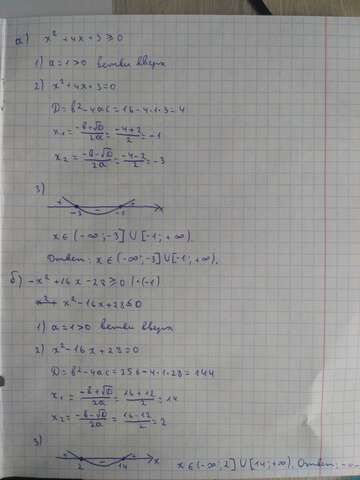 а) x² + 4x + 3 ≥ 0
1) a = 1 > 0 ветви вверх
2) x² + 4x + 3 = 0
D = b² - 4ac = 16 - 4·1·3 = 4
x₁ = (-b+√D)/2a = (-4+2)/2 = -1
x₂ = (-b-√D)/2a = (-4-2)/2 = -3
3)
+ - +
-3 -1 x
x ∈ (-∞; -3] ∪ [-1; +∞).
Ответ: x ∈ (-∞; -3] ∪ [-1; +∞).
б) -x² + 16x - 28 ≥ 0 | · (-1)
x² - 16x + 28 ≤ 0
1) a = 1 > 0 ветви вверх
2) x² - 16x + 28 = 0
D = b² - 4ac = 256 - 4·1·28 = 144
x₁ = (-b+√D)/2a = (16+12)/2 = 14
x₂ = (-b-√D)/2a = (16-12)/2 = 2
3)
+ - +
2 14 x
x ∈ (-∞; 2] ∪ [14; +∞). Ответ: